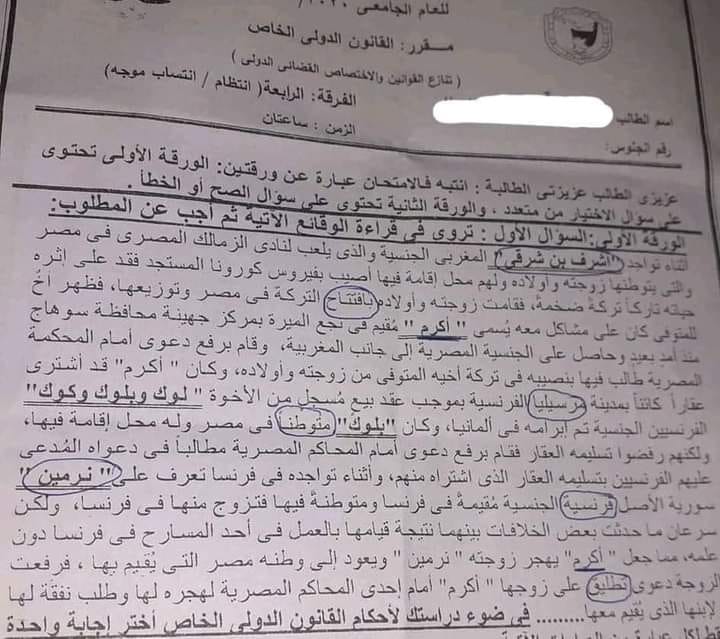 للعام الجامعى
مقرر: القانون الدولى الخاص
( تنازع القوانين والاختصاص القضائى الدولى )
الفرقة: الرابعة( انتظام / انتساب موجه)
الزمن : ساعتان
اسم الطالب
رقم الجلوس:
عزيزى الطالب عزيزتى الطالبة : انتبه فالامتحان عبارة عن ورقتين: الورقة الأولى تحتوى
على سؤال الاختيار من متعدد ، والورقة الثانية تحتوى على سؤال الصح أو الخطأ .
الورقة الأولى:السؤال الأول : تروى فى قراءة الوقائع الآتية ثم أجب عن المطلوب:
أثناء تواجد "اشرف بن شرقى" المغربى الجنسية والذى يلعب لنادى الزمالك المصرى فى مصر
والتى يتوطنها زوجته وأولاده ولهم محل إقامة فيها أصيب بفيروس كورونا المستجد فقد على إثره
حياته تاركاً تركة ضخمة، فقامت زوجته وأولاده بافتتاح التركة فى مصر وتوزيعها، فظهر أخٌ
للمتوفى كان على مشاكل معه يُسمى " أكرم " مُقيم فى نجع الميرة بمركز جهينة محافظة سوهاج
منذ أمدٍ بعيدٍ وحاصل على الجنسية المصرية إلى جانب المغربية، وقام برفع دعوى أمام المحكمة
المصرية طالب فيها بنصيبه فى تركة أخيه المتوفى من زوجته وأولاده، وكان "أكرم" قد أشترى
عقاراً كائناً بمدينة مرسيليا الفرنسية بموجب عقد بيع مُسجل من الأخوة " لوك وبلوك وكوك"
الفرنسيين الجنسية تم إبرامه فى ألمانيا، وكان "بلوك" متوطناً فى مصر وله محل إقامة فيها،
ولكنهم رفضوا تسليمه العقار فقام برفع دعوى أمام المحاكم المصرية مطالباً فى دعواه المُدعى
عليهم الفرنسيين بتسليمه العقار الذى اشتراه منهم، وأثناء تواجده فى فرنسا تعرف على " نرمين "
سورية الأصل فرنسية الجنسية مُقيمة فى فرنسا ومتوطنةً فيها فتزوج منها فى فرنسا، ولكن
سرعان ما حدثت بعض الخلافات بينهما نتيجة قيامها بالعمل فى أحد المسارح فى فرنسا دون
علمه، مما جعل " أكرم" يهجر زوجته "نرمين" ويعود إلى وطنه مصر التى يُقيم بها ، فرفعت
الزوجة دعوى تطليق على زوجها "أكرم" أمام إحدى المحاكم المصرية لهجره لها وطلب نفقة لها
لإبنها الذى يُقيم معها......... فى ضوء دراستك لأحكام القانون الدولى الخاص أختر إجابة واحدة